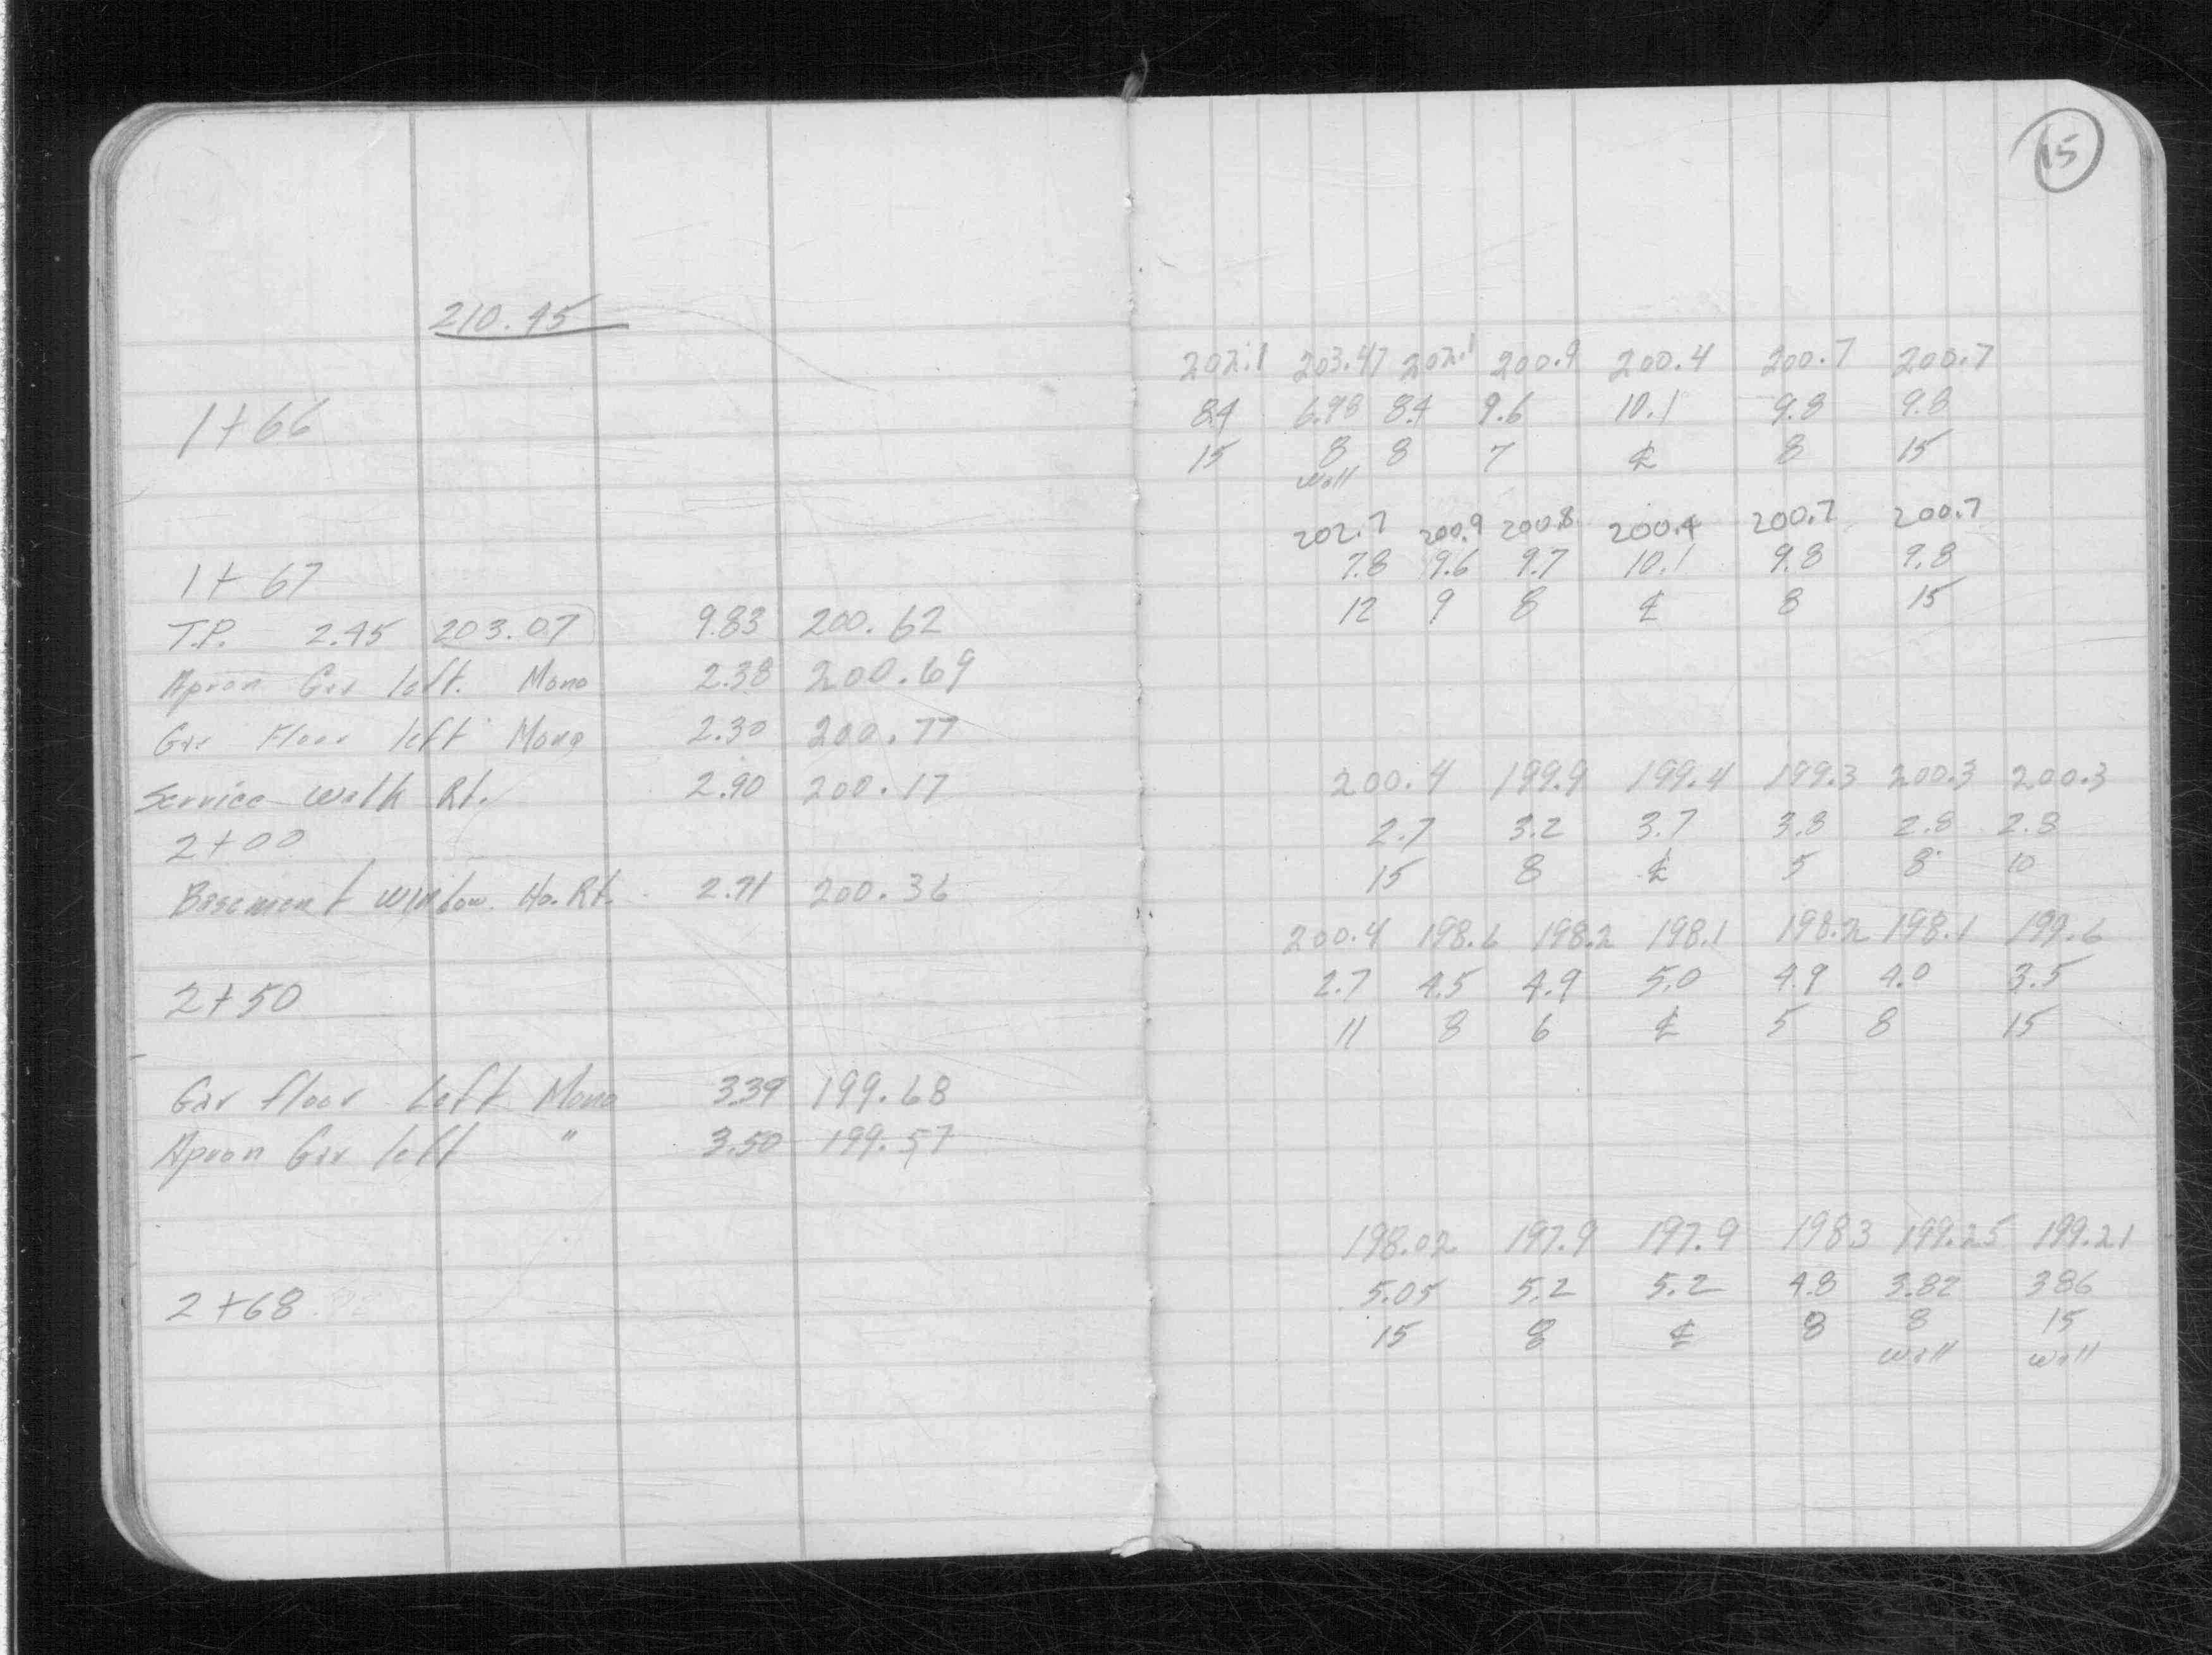 15
210.45
202.1 203.47 202.1 200.9 200.4 200.7 200.7
1+66 8.4 6.98 8.4 9.6 10.1 9.8 9.8
15 8 8 7 ℄ 8 15
Wall
202.7 200.9 200.8 200.4 200.7 200.7
1+67 7.8 9.6 9.7 10.1 9.8 9.8
12 9 8 ℄ 8 15
T.P. 2.45 203.07 9.83 200.62
Apron Gar left. Mono 2.38 200.69
Gar Floor left Mono 2.30 200.77
Service Walk Rt. 2.90 200.17
200.4 199.9 199.4 199.3 200.3 200.3
2+00 2.7 3.2 3.7 3.8 2.8 2.8
15 8 ℄ 5 8 10
Basement Window Ho. Rt. 2.71 200.36
200.4 198.6 198.2 198.1 198.2 198.1 199.6
2+50 2.7 4.5 4.9 5.0 4.9 4.0 3.5
11 8 6 ℄ 5 8 15
Gar floor Left Mono 3.39 199.68
Apron Gar left " 3.50 199.57
198.02 197.9 197.9 198.3 199.25 199.21
2+68 5.05 5.2 5.2 4.8 3.82 3.86
15 8 ℄ 8 8 15
Wall Wall